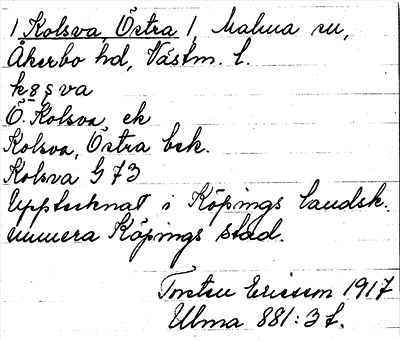 / Kolsva, Östra /, Malma sn,
Åkerbo hd, Västm. l.
kɑ̨sva
Ö. Kolsva, ek
Kolsva, Östra bek.
Kolsva G 73
Upptecknat i Köpings landsk.
numera Köpings stad.
Torsten Ericsson 1917
Ulma 881:3 f.